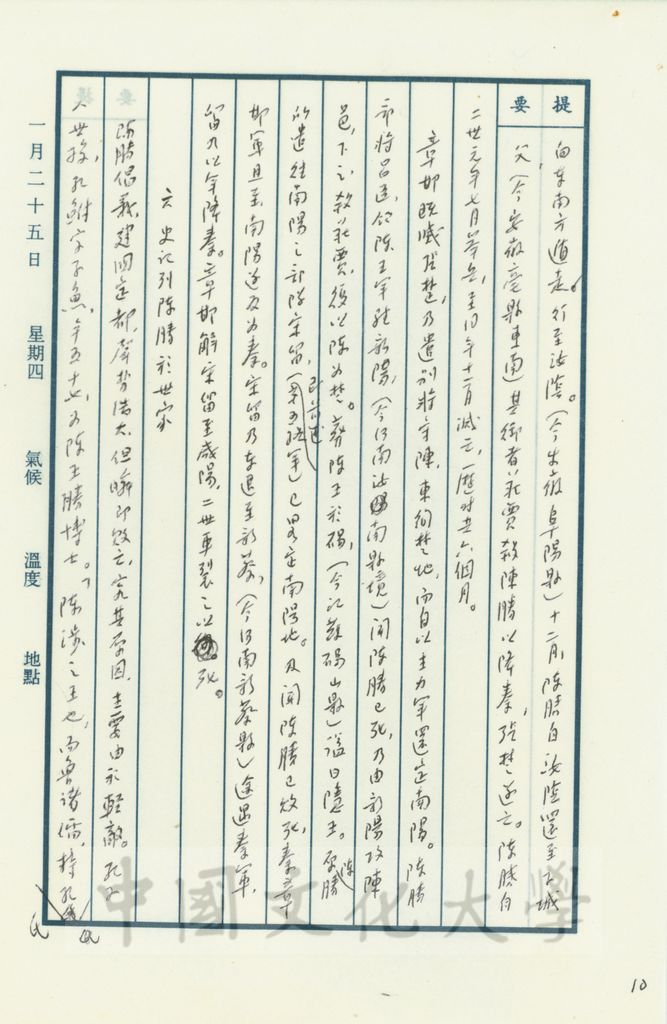 提
要
向東南方遁走。行至汝陰。（今安徽阜陽縣）十二月，陳勝自汝陰還至下城
父，（今安徽亳縣東南）其御者莊賈殺陳勝以降秦，張楚遂亡。陳勝自
二世元年七月舉兵，至同年十二月滅亡，歷時共六個月。
章邯既滅張楚，乃遣別將守陳，東徇楚地，而自以主力軍還定南陽。陳勝
部將呂臣，領陳王軍於新陽，（今河南汝南縣境）聞陳勝已死，乃由新陽攻陳
邑，下之，殺莊賈，復以陳為楚。葬陳王於碭，（今江蘇碭山縣）謚曰隱王。陳勝
所遣往南陽之部隊宋留，（即前述第五路軍）已略定南陽地。及聞陳勝已敗死，秦章
邯軍且至，南陽遂反為秦。宋留乃東退至新蔡，（今河南新蔡縣）途遇秦軍，
留乃以軍降秦。章邯解宋留至咸陽，二世車裂之以死。
六 史記列陳勝於世家
陳勝倡義，建國定都，聲勢浩大，但瞬即敗亡，究其原因，主要由於輕敵。孔子
八世孫孔鮒字子魚，年五十七，為陳王勝博士。「陳涉之王也，而魯諸儒，持孔氏
一月二十五日 星期四 氣候 溫度 地點
中國文化大學
10